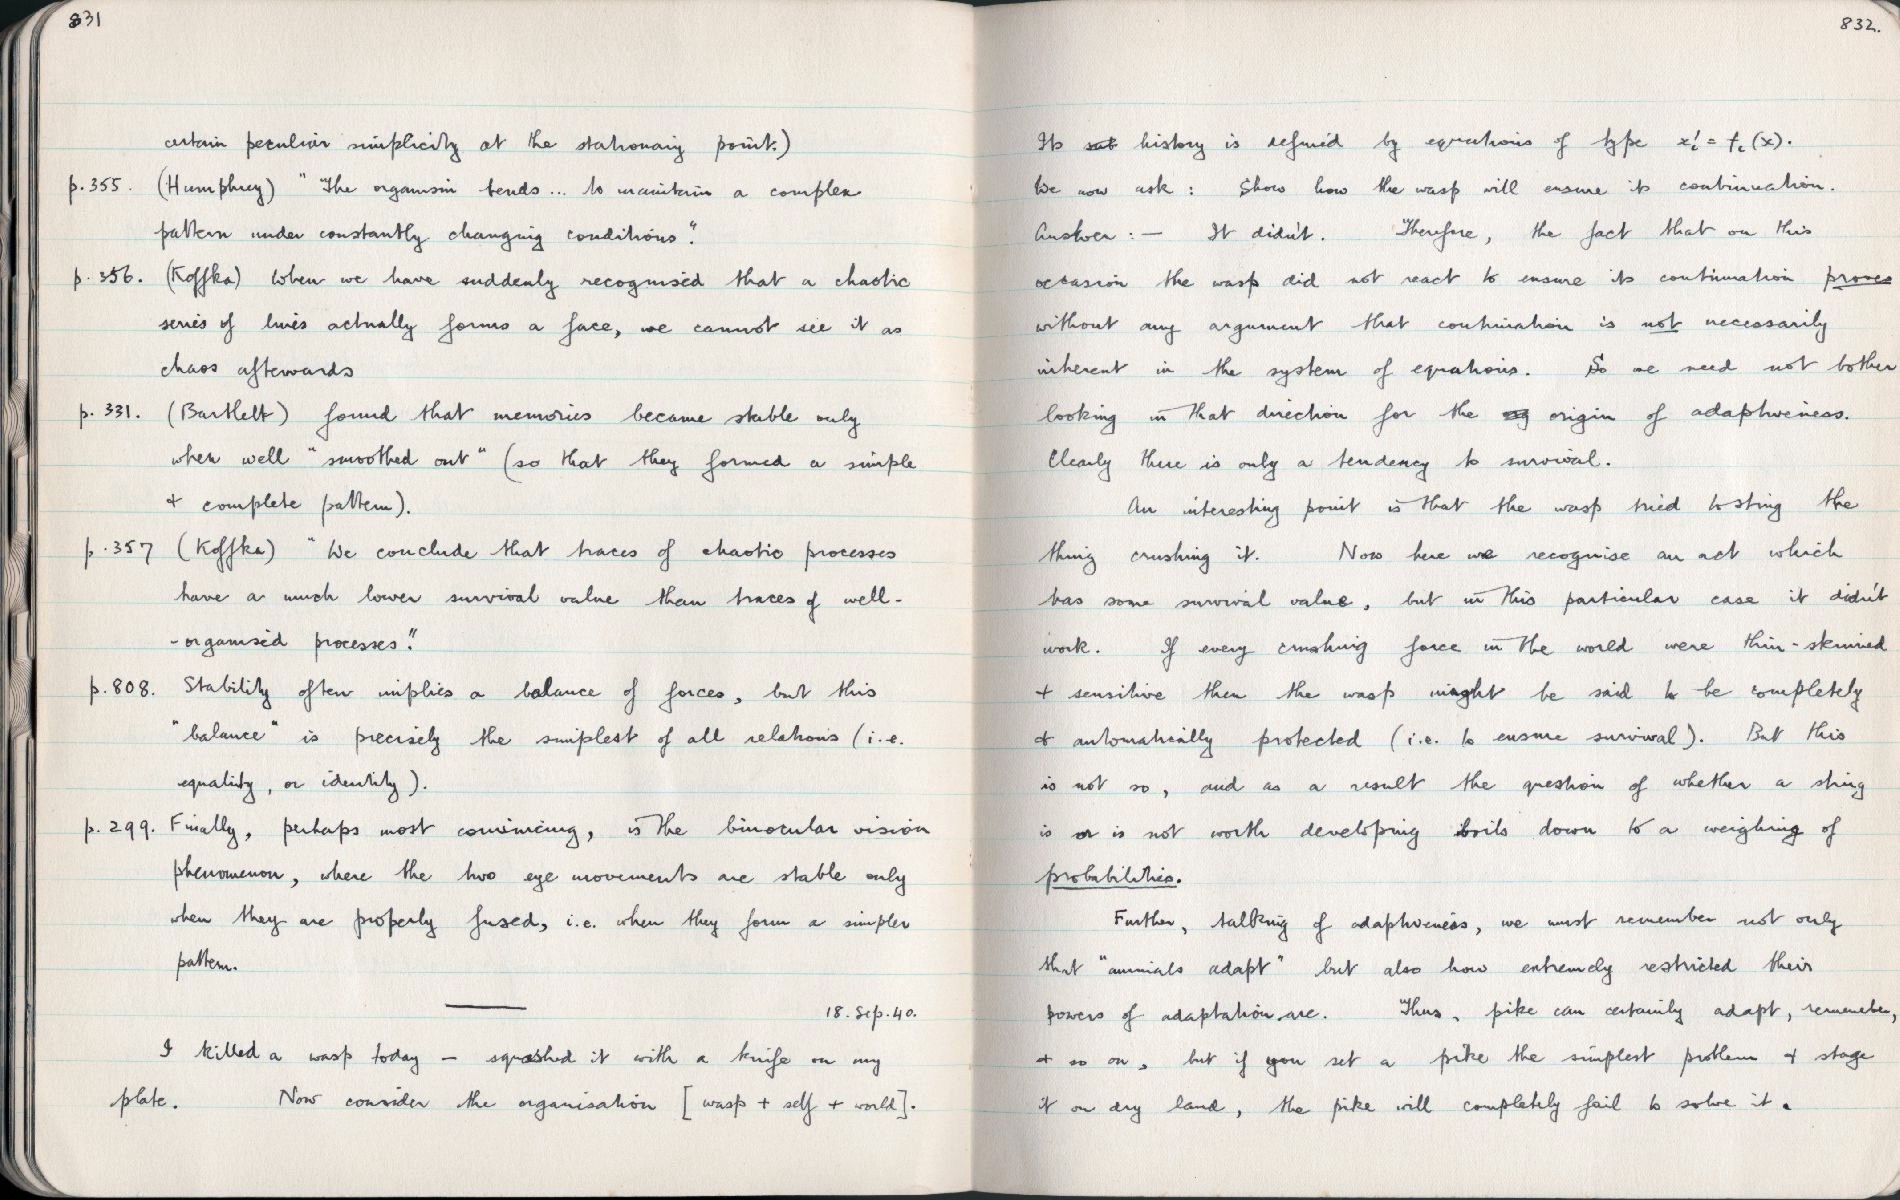 831
certain peculiar simplicity at the stationary point.)
p.355. (Humphrey) "The organism tends ... to maintain a complex
pattern under constantly changing conditions".
p.356. (Koffka) When we have suddenly recognised that a chaotic
series of lines actually forms a face, we cannot see it as
chaos afterwards
p.331. (Bartlett) found that memories became stable only
when well "smoothed out" (so that they formed a simple
+ complete pattern).
p.357 (Koffka) "We conclude that traces of chaotic processes
have a much lower survival value than traces of well-
-organised processes".
p.808. Stability often implies a balance of forces, but this
"balance" is precisely the simplest of all relations (i.e.
equality, or identity).
p.299. Finally, perhaps most convincing, is the binocular vision
phenomenon, where the two eye movements are stable only
when they are properly fused, i.e. when they form a simpler
pattern.
18.Sep.40.
I killed a wasp today — squashed it with a knife on my
plate. Now consider the organisation [wasp + self + world].
832.
Its history is defined by equations of type x'ᵢ = fᵢ(x).
We now ask: Show how the wasp will ensure its continuation.
Answer:— It didn't. Therefore, the fact that on this
occasion the wasp did not react to ensure its continuation proves
without any argument that continuation is not necessarily
inherent in the system of equations. So we need not bother
looking in that direction for the origin of adaptiveness.
Clearly there is only a tendency to survival.
An interesting point is that the wasp tried to sting the
thing crushing it. Now here we recognise an act which
has some survival value, but in this particular case it didn't
work. If every crushing force in the world were thin-skinned
+ sensitive then the wasp might be said to be completely
+ automatically protected (i.e. to ensure survival). But this
is not so, and as a result the question of whether a sting
is or is not worth developing boils down to a weighing of
probabilities.
Further, talking of adaptiveness, we must remember not only
that "animals adapt" but also how extremely restricted their
powers of adaptation are. Thus, pike can certainly adapt, remember,
+ so on, but if you set a pike the simplest problem + stage
it on dry land, the pike will completely fail to solve it.